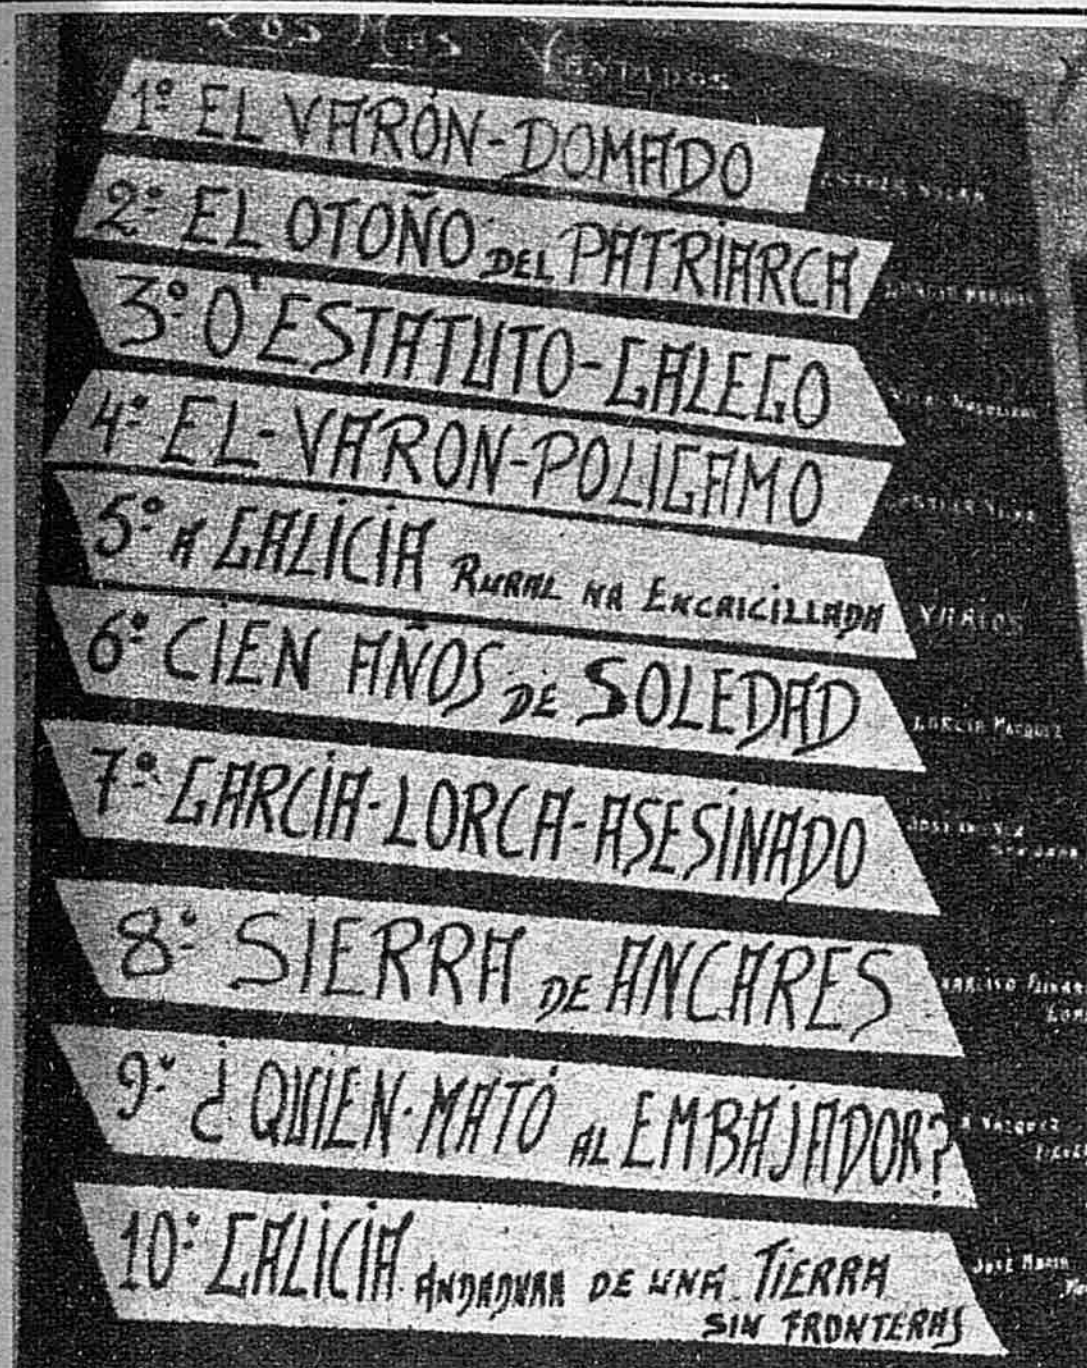 Los Mas Ventidos
1º EL VARÓN-DOMADO
ESTHER VILAR
2º EL OTOÑO DEL PATRIARCA
GARCIA MARQUEZ
3º O'ESTATUTO-GALEGO
4º EL-VARON-POLIGAMO
ESTHER VILAR
5º A GALICIA RURAL NA ENCRICILLADA
VARIOS
6º CIEN AÑOS DE SOLEDAD
GARCIA MARQUEZ
7º GARCIA-LORCA-ASESINADO
8º SIERRA DE ANCARES
9º ¿QUIEN-MATÓ AL EMBAJADOR?
VAZQUEZ
10º GALICIA ANDADURA DE UNA TIERRA
SIN FRONTERAS
JOSÉ MARIA